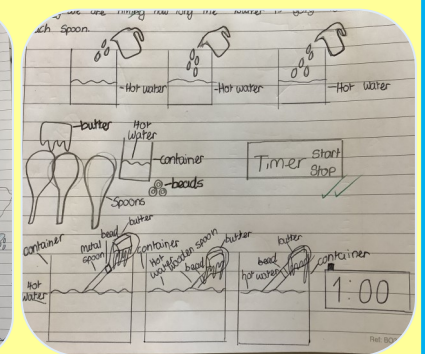 we are timing how long the
uch spoon.
Hot water
Hot water
Hot water
butter
Hot
Water
container
beads
Spoons
Timer Start
Stop
container
metal
spoon
bead
butter
Hot
Water
container
Hot
water
wooden spoon
bead
butter
butter
bead
hot water
container
1:00